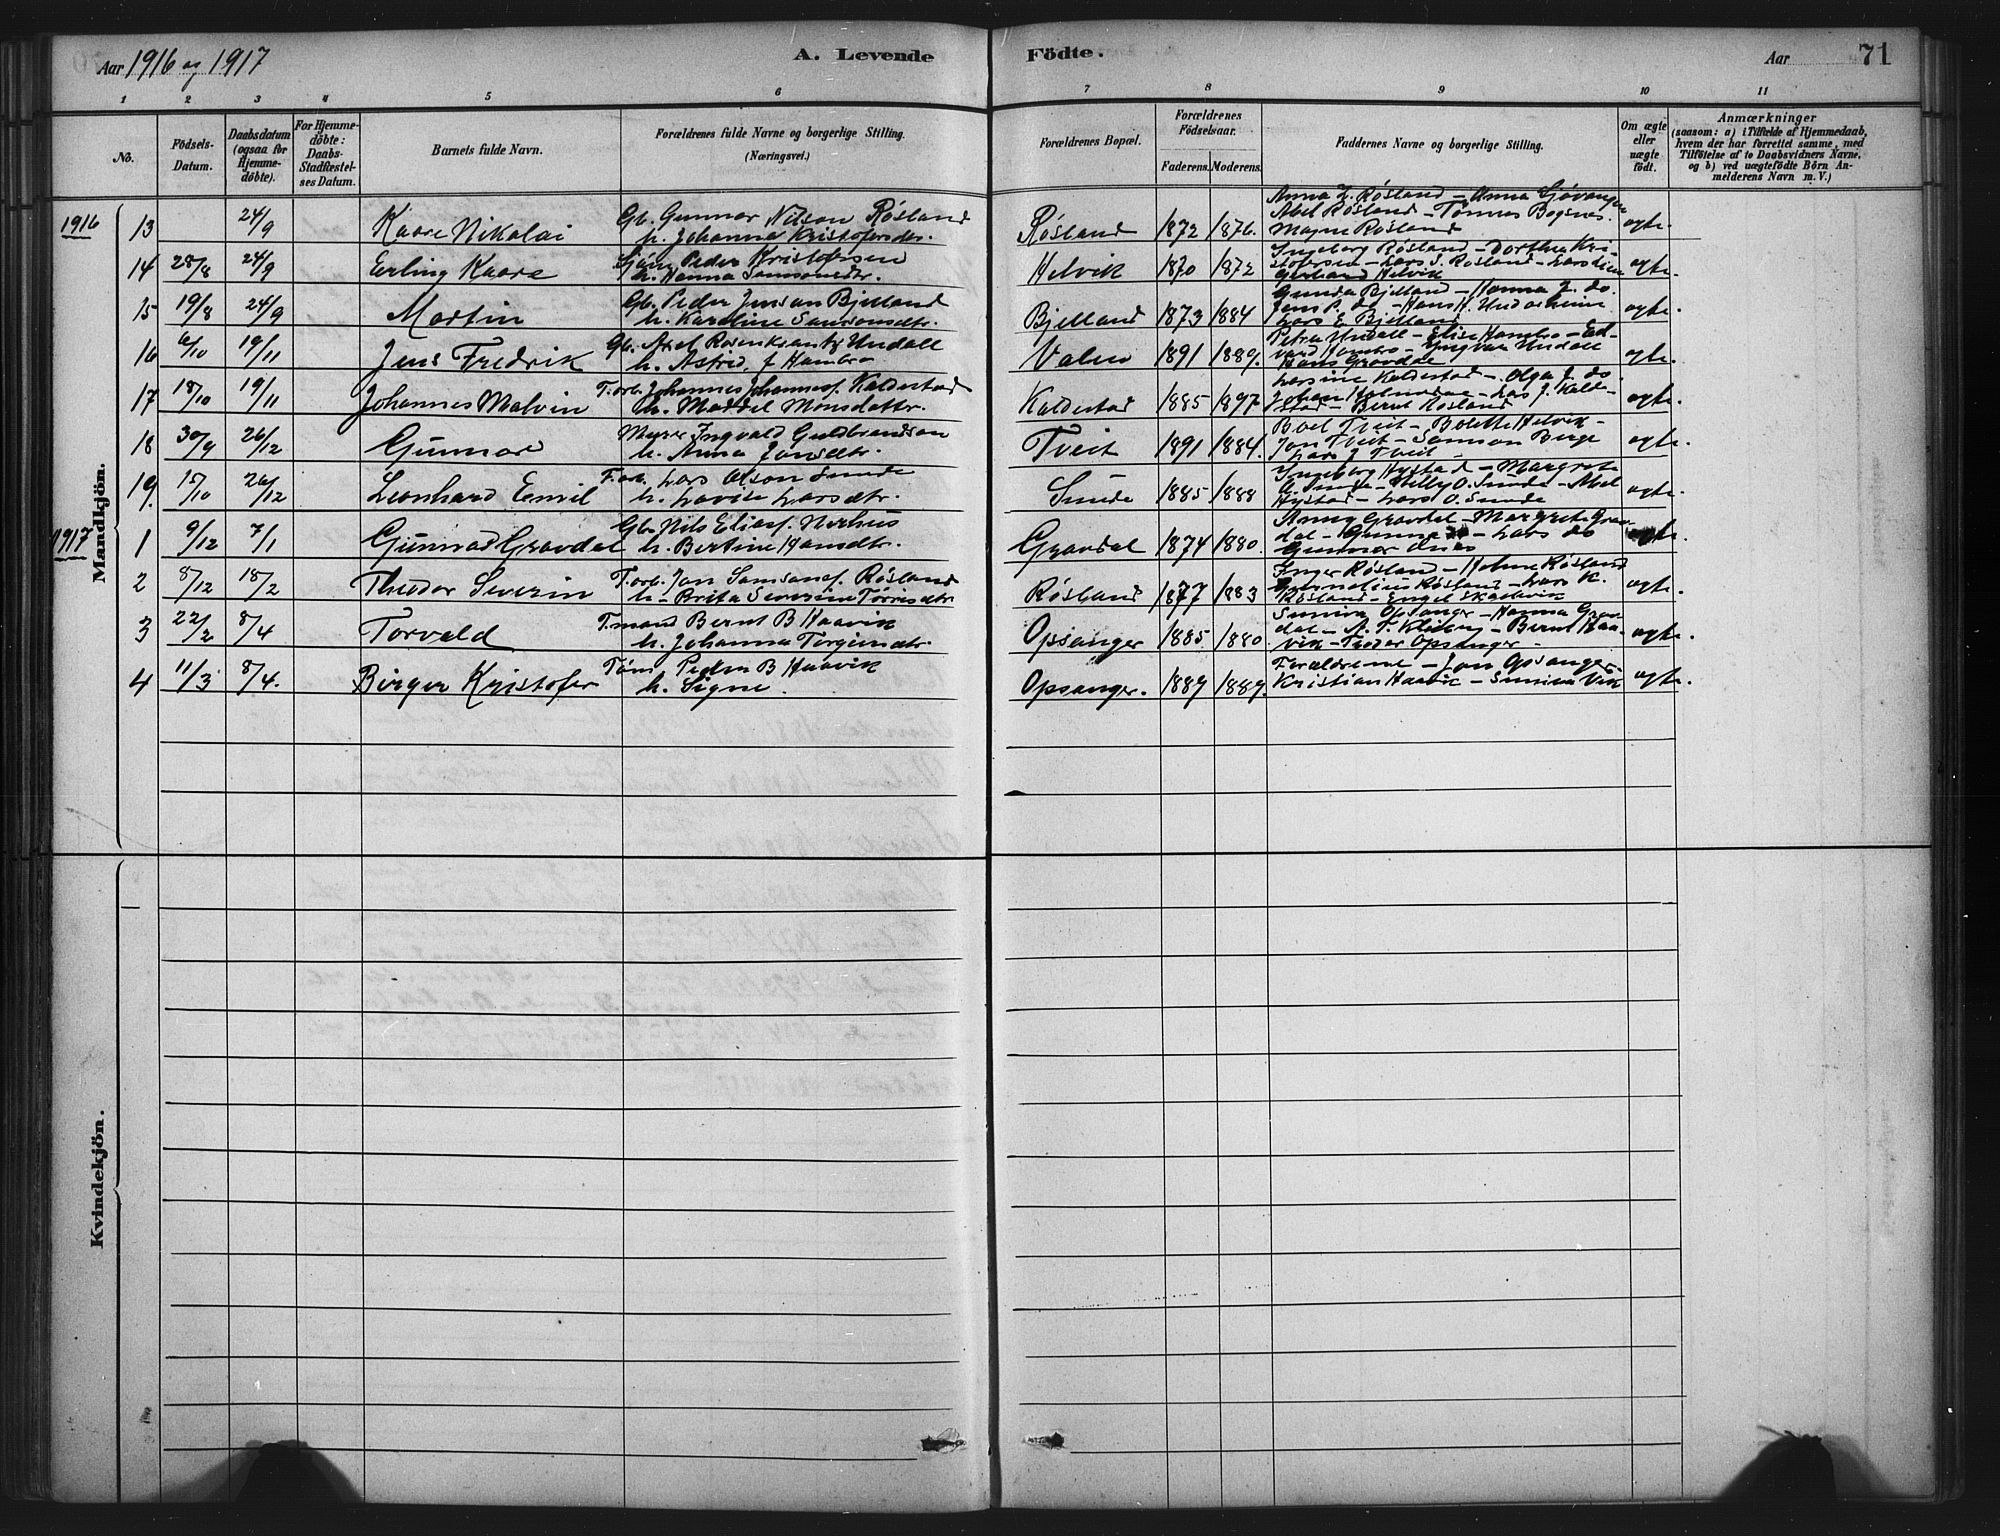 Aar 1916 og 1917
A. Levende
Födte.
Aar
71
1 2 3 4 5 6 7 8 9 10 11
No.
Födsels-
Datum.
Daabsdatum
(ogsaa for
Hjemme-
döbte).
For Hjemme-
döbte:
Daabs-
Stadfæstel-
ses Datum.
Barnets fulde Navn.
Forældrenes fulde Navne og borgerlige Stilling.
(Næringsvei.)
Forældrenes Bopæl.
Forældrenes
Födselsaar.
Faderens. Moderens.
Faddernes Navne og borgerlige Stilling.
Om ægte
eller
uægte
født.
Anmærkninger
(saasom: a) i Tilfælde af Hjemmedaab,
hvem der har forrettet samme, med
Tilföielse af to Daabsvidners Navne,
og b) ved uægtefödte Börn An-
melderens Navn m. V.)
Mandkjön.
1916
13 24/9 Kaare Nikolai
Gb. Gunnar Nilson Røsland
h. Johanna Kristofersdr.
Røsland 1872 1876.
Anna Røsland - Anna
Abel Røsland - Tønnes Bogsnes.
Magne Røsland
egte.
14 28/8 24/9 Erling Kaare
Peder Kristofersen
h. Hanna Samsonsdtr.
Helvik 1870 1872
Ingeborg Røsland - Dorthea Kri-
stofersen - Lars S. Røsland -
Gerhard Helvik
egte.
15 19/8 24/9 Martin
Gb. Peder Jensen Bjelland
h. Karoline Samsonsdtr.
Bjelland 1873 1884
Gunda Bjelland - Hanna J. do.
Jens P. do - Hans H. Undarheim
Lars E Bjelland
egte.
16 6/10 19/11 Jens Fredrik
Gb. Axel Rosenkrantz Undall
h. Astrid, f Hambro
Valen 1891 1889.
Petra Undall - Elise Hambro - Ed-
vard Hambro - Yngvar Undall
Hans Gravdal
egte.
17 18/10 19/11 Johannes Malvin
F.arb. Johannes Johannesf. Kaldestad
h. Maddel Monsdattr.
Kaldestad 1885 1897
Larsine Kaldestad - Olga J. do
Johan - Lars J. Kalde-
stad - Bernt Røsland
egte.
18 30/9 26/12 Gunnar
Ingvald Guldbrandson
h. Anna Jonsdtr.
Tveit 1891 1884.
Boel Tveit - Bolette Helvik -
Jon Tveit - Samson Berge
Lars J Tveit
egte.
19. 15/10 26/12 Leonhard Emil
F.arb. Lars Olson Sunde
h. Lovise Larsdtr.
Sunde 1885 1888
Ingeborg Hystad - Margrete
O. Sunde - Willy O. Sunde - Abel
Hystad - Lars O. Sunde
egte.
1917
1 9/12 7/1 Gunvald Gravdal
Gb. Nils Eliasf. Nerhus
h. Bertine Hansdtr.
Gravdal 1874 1880.
Anna Gravdal - Margreta Grav-
dal - Gunnar - Lars do
Gunnar
egte.
2 8/12 18/2 Theodor Severin
F.arb. Jon Samsonsf. Røsland
h. Brita Severine Tørrisdtr
Røsland 1877 1883
Inger Røsland - Helene Røsland
Kornelius Røsland - Lars K.
Røsland - Engel
egte.
3 22/2 8/4 Torvald
F.mand Bernt B Haavik
h. Johanna Torgeirsdtr.
Opsanger 1885. 1880.
Suniva Opsanger - Hanna Grav-
dal - A. T. - Bernt Haa-
vik - Opsanger
egte.
4 11/3 8/4. Birger Kristofer
Tøm Peder B Haavik
h. Signe.
Opsanger. 1889 1889.
Forældrene - Jon Opsanger.
Kristian Haavik - Suniva Vik
egte.
Kvindekjön.